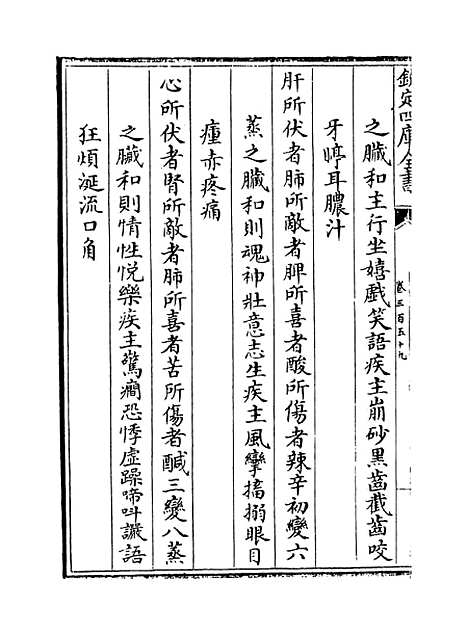 欽定四庫全書
卷三百五十九
之臓和主行坐嬉戱笑語疾主崩砂黒齒截齒咬
牙㖞耳膿汁
肝所伏者肺所敵者脾所喜者酸所傷者辣辛初變六
蒸之臓和則魂神壯意志生疾主風攣搐搦眼目
瘇赤疼痛
心所伏者腎所敵者肺所喜者苦所傷者鹹三變八蒸
之臓和則情性悦樂疾主驚癎恐悸虚躁啼呌讝語
狂煩涎流口角